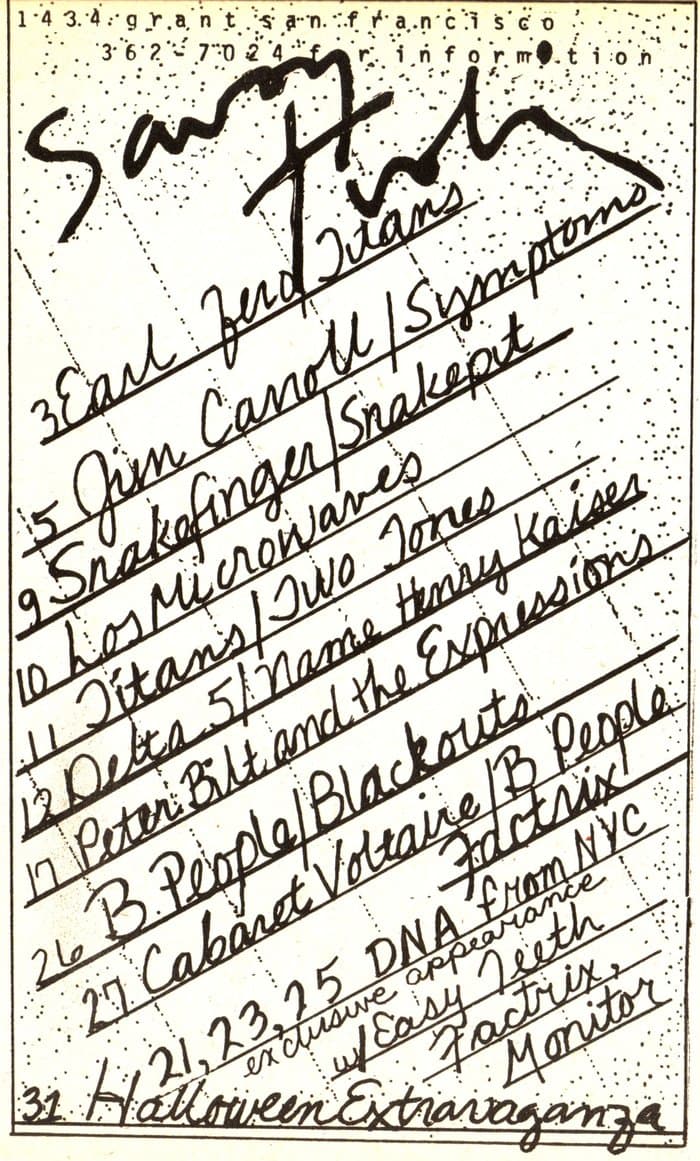 1434 grant san francisco
362-7024 for information
Savoy
Tivoli
3 Earl Zero/Titans
5 Jim Carroll/Symptoms
9 Snakefinger/Snakepit
10 Los Microwaves
11 Titans/Two Tones
12 Delta 5/Name Henry Kaiser
17 Peter Bilt and the Expressions
26 B. People/Blackouts
27 Cabaret Voltaire/B People
Factrix
21, 23, 25 DNA from NYC
exclusive appearance
w/ Easy Teeth
Factrix,
Monitor
31 Halloween Extravaganza